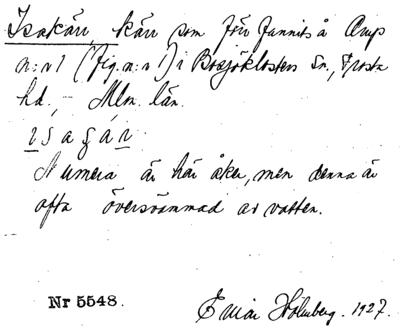 Isakärr, kärr som förr funnits å Arup
n:r 1 (fig. n:r 1) i Bosjöklosters sn., Frosta
hd., Mlm. län.
Numera är här åker, men denna är
ofta översvämmad av vatten.
Nr 5548.
Einar Holmberg. 1927.